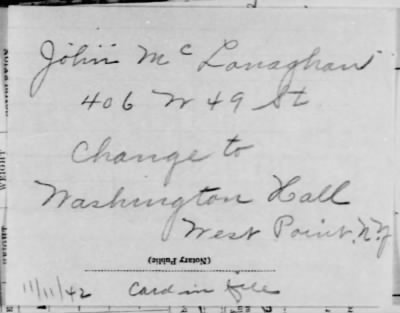 John Mc Lanaghan
406 W 49 St
Change to
Washington Hall
West Point, N.Y
(Notary Public)
11/11/42 Card in file